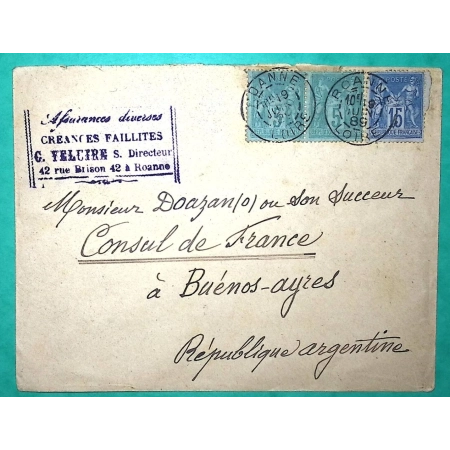 Assurances diverses
CREANCES FAILLITES
G. YELCIRE S. Directeur
42 rue Brison 42 à Roanne
ROANNE
ROANNE
15
Monsieur Doazan(o) ou son Succeur
Consul de France
à Buénos-ayres
République argentine